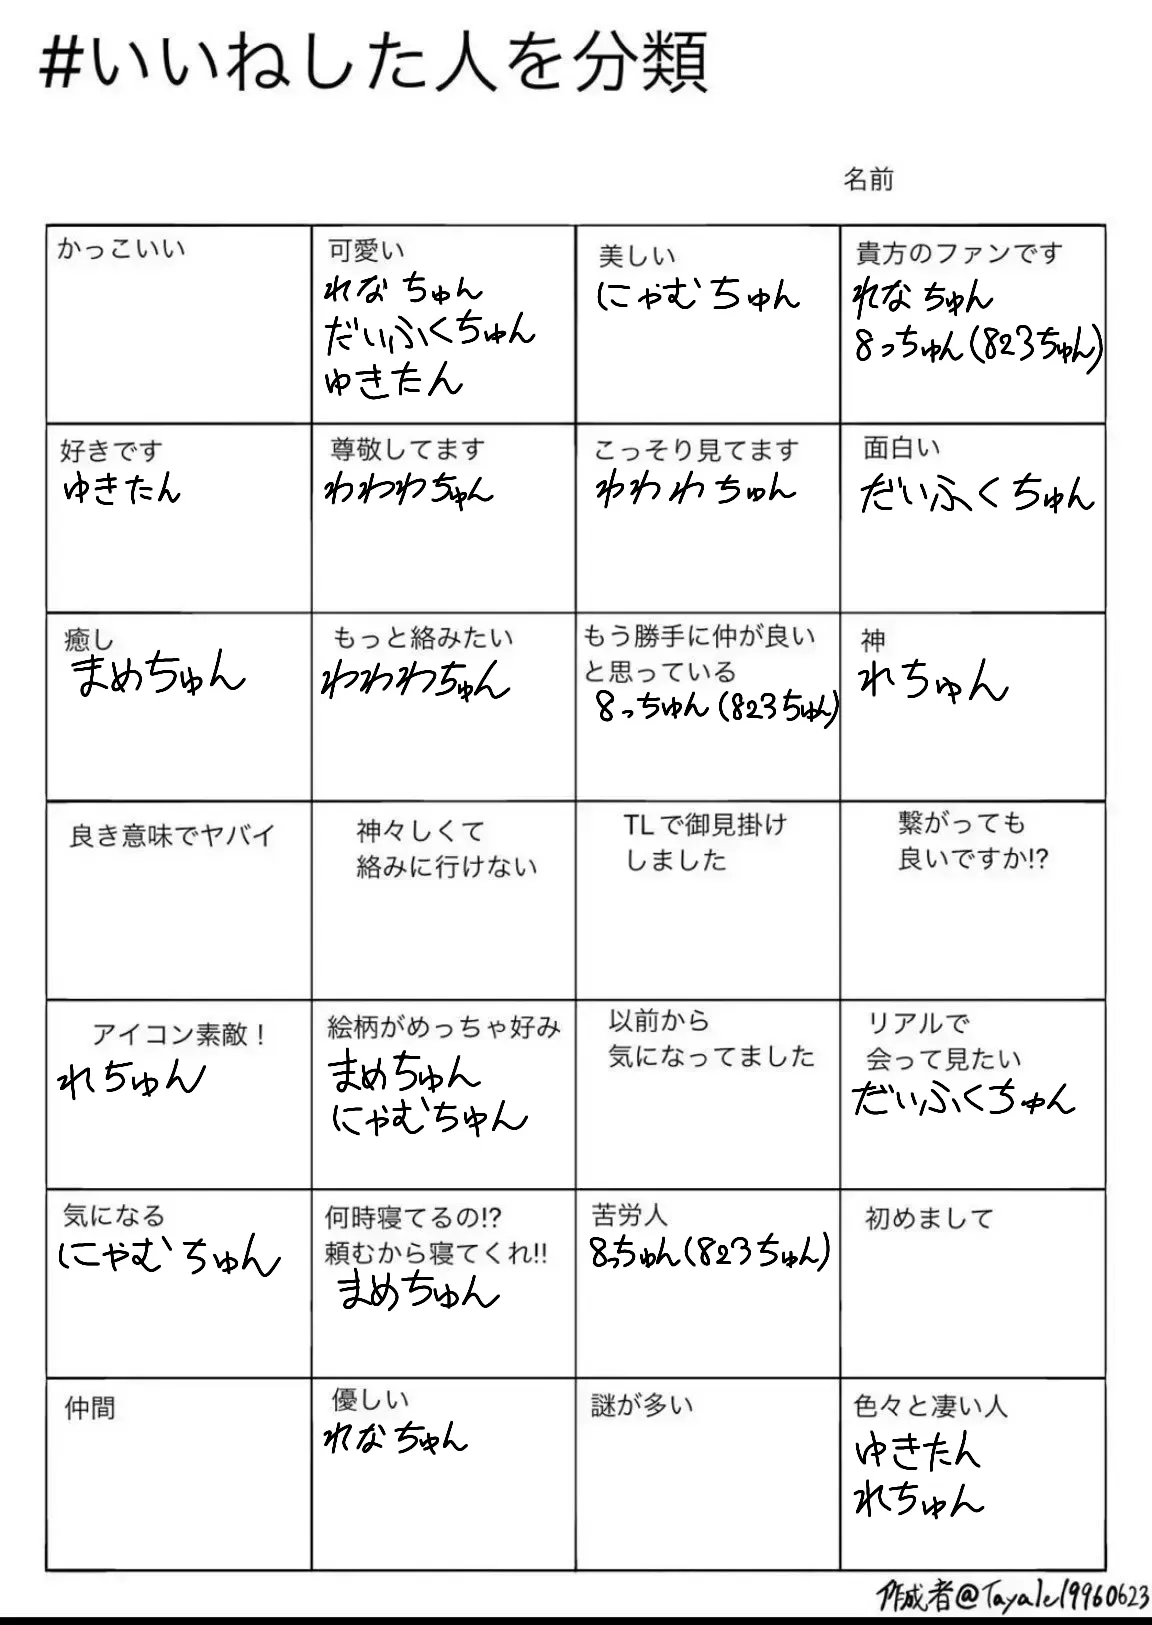 #いいねした人を分類
名前
かっこいい
可愛い
れなちゅん
だいふくちゅん
ゆきたん
美しい
にゃむちゅん
貴方のファンです
れなちゅん
8っちゅん(823ちゅん)
好きです
ゆきたん
尊敬してます
わわわちゅん
こっそり見てます
わわわちゅん
面白い
だいふくちゅん
癒し
まめちゅん
もっと絡みたい
わわわちゅん
もう勝手に仲が良い
と思っている
8っちゅん(823ちゅん)
神
れちゅん
良き意味でヤバイ
神々しくて
絡みに行けない
TLで御見掛け
しました
繋がっても
良いですか!?
アイコン素敵！
れちゅん
絵柄がめっちゃ好み
まめちゅん
にゃむちゅん
以前から
気になってました
リアルで
会って見たい
だいふくちゅん
気になる
にゃむちゅん
何時寝てるの!?
頼むから寝てくれ!!
まめちゅん
苦労人
8っちゅん(823ちゅん)
初めまして
仲間
優しい
れなちゅん
謎が多い
色々と凄い人
ゆきたん
れちゅん
作成者@Tayale19960623